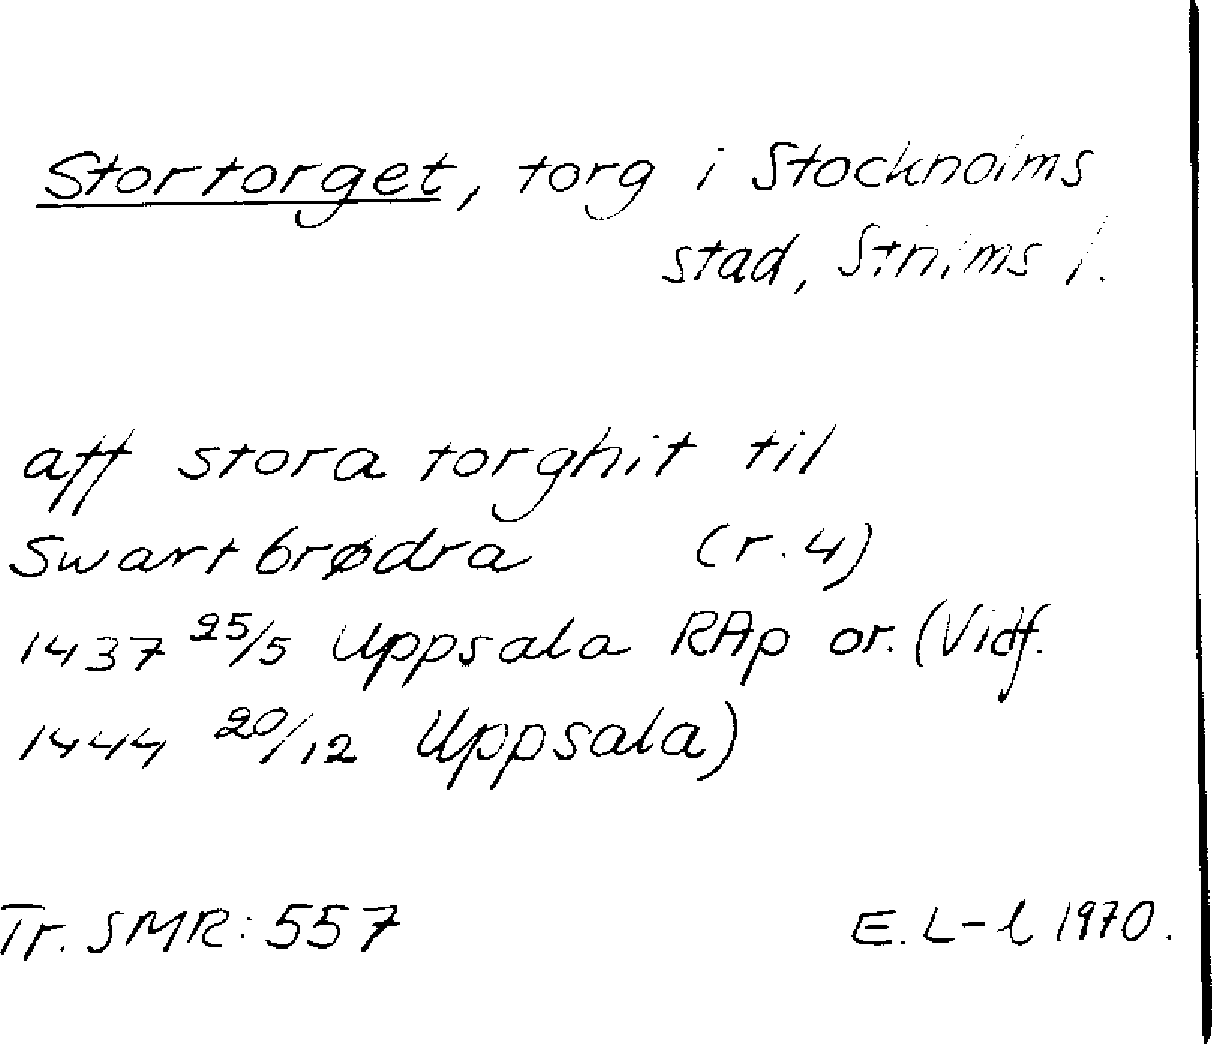 Stortorget, torg i Stockholms
stad, Sthlms l.
aff stora torghit til
Swartbrødra (r. 4)
1437 25/5 Uppsala RAp or. (Vidf.
1444 20/12 Uppsala)
Tr. SMR: 557 E. L-l 1970.